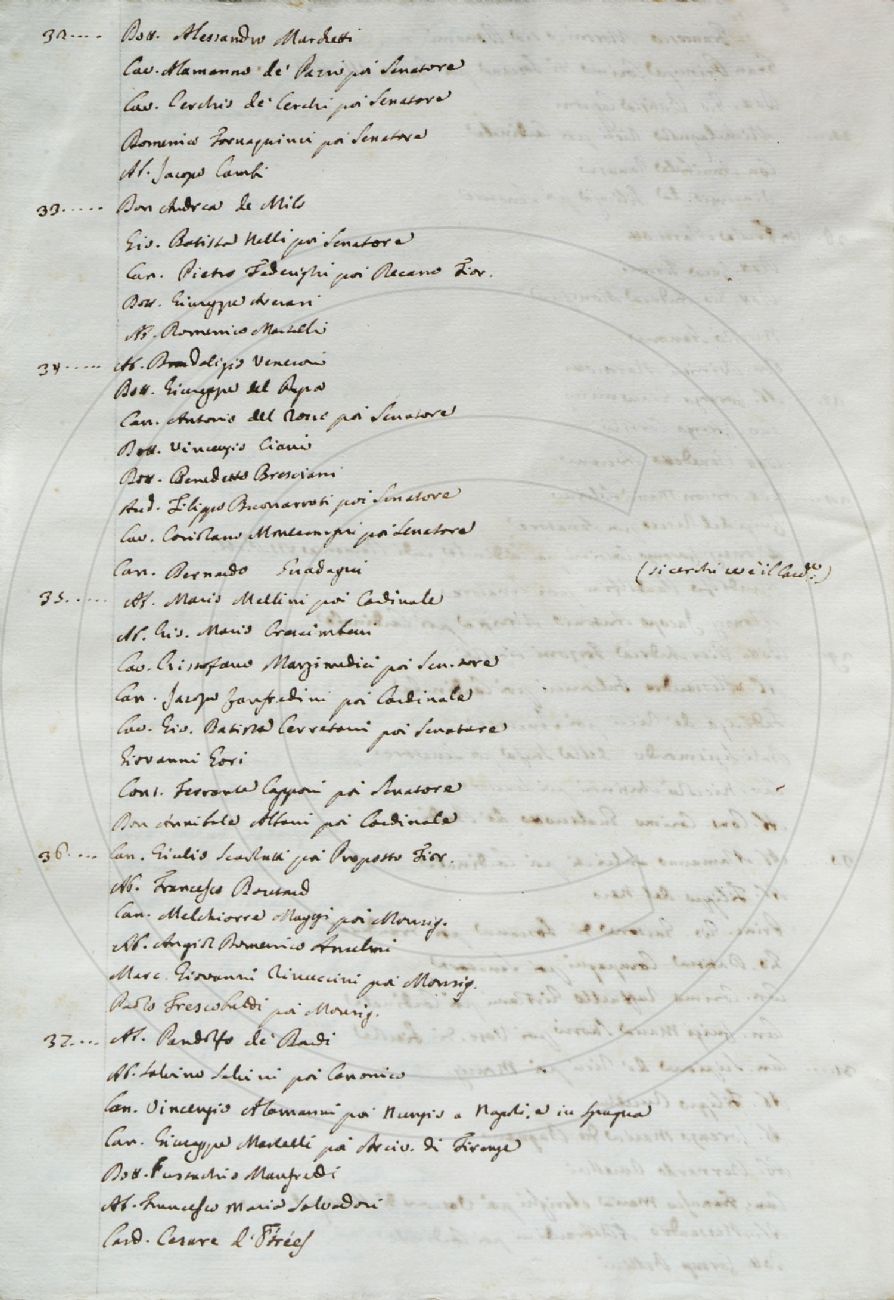 32.... Dott. Alessandro Marchetti
Cav. Alamanno de' Pazzi poi Senatore
Cav. Cerchio de' Cerchi poi Senatore
Domenico Tornaquinci poi Senatore
Ab. Jacopo Cambi
33..... Don Andrea de Milo
Gio. Batista Nelli poi Senatore
Can. Pietro Federighi poi Decano Fior.
Dott. Giuseppe Averani
Ab. Domenico Martelli
34..... Ab. Bandaligio Venerosi
Dott. Giuseppe del Papa
Can. Antonio del Rosso poi Senatore
Dott. Vincenzio Ciani
Dott. Benedetto Bresciani
Aud. Filippo Buonarroti poi Senatore
Cav. Coriolano Montemagni poi Senatore
Can. Bernardo Guadagni (si cerchi se è il Card.le)
35..... Ab. Mario Mellini poi Cardinale
Ab. Gio. Mario Crescimbeni
Cav. Cristofano Marzimedici poi Senatore
Can. Jacopo Zanfredini poi Cardinale
Cav. Gio. Batista Cerretani poi Senatore
Giovanni Gori
Cont. Ferrante Capponi poi Senatore
Don Annibale Albani poi Cardinale
36.... Can. Giulio Scarlatti poi Proposto Fior.
Ab. Francesco
Can. Melchiorre Maggi poi Monsig.
Ab. Angiol Domenico Ancelmi
Marc. Giovanni Rinuccini poi Monsig.
Paolo Frescobaldi poi Monsig.
37.... Ab. Pandolfo de' Bardi
Ab. Salvino Salvini poi Canonico
Can. Vincenzio Alamanni poi Nunzio a Napoli, e in Spagna
Can. Giuseppe Martelli poi Arciv. di Firenze
Dott. Eustachio Manfredi
Ab. Francesco Maria Salvadori
Card. Cesare d'Etrées